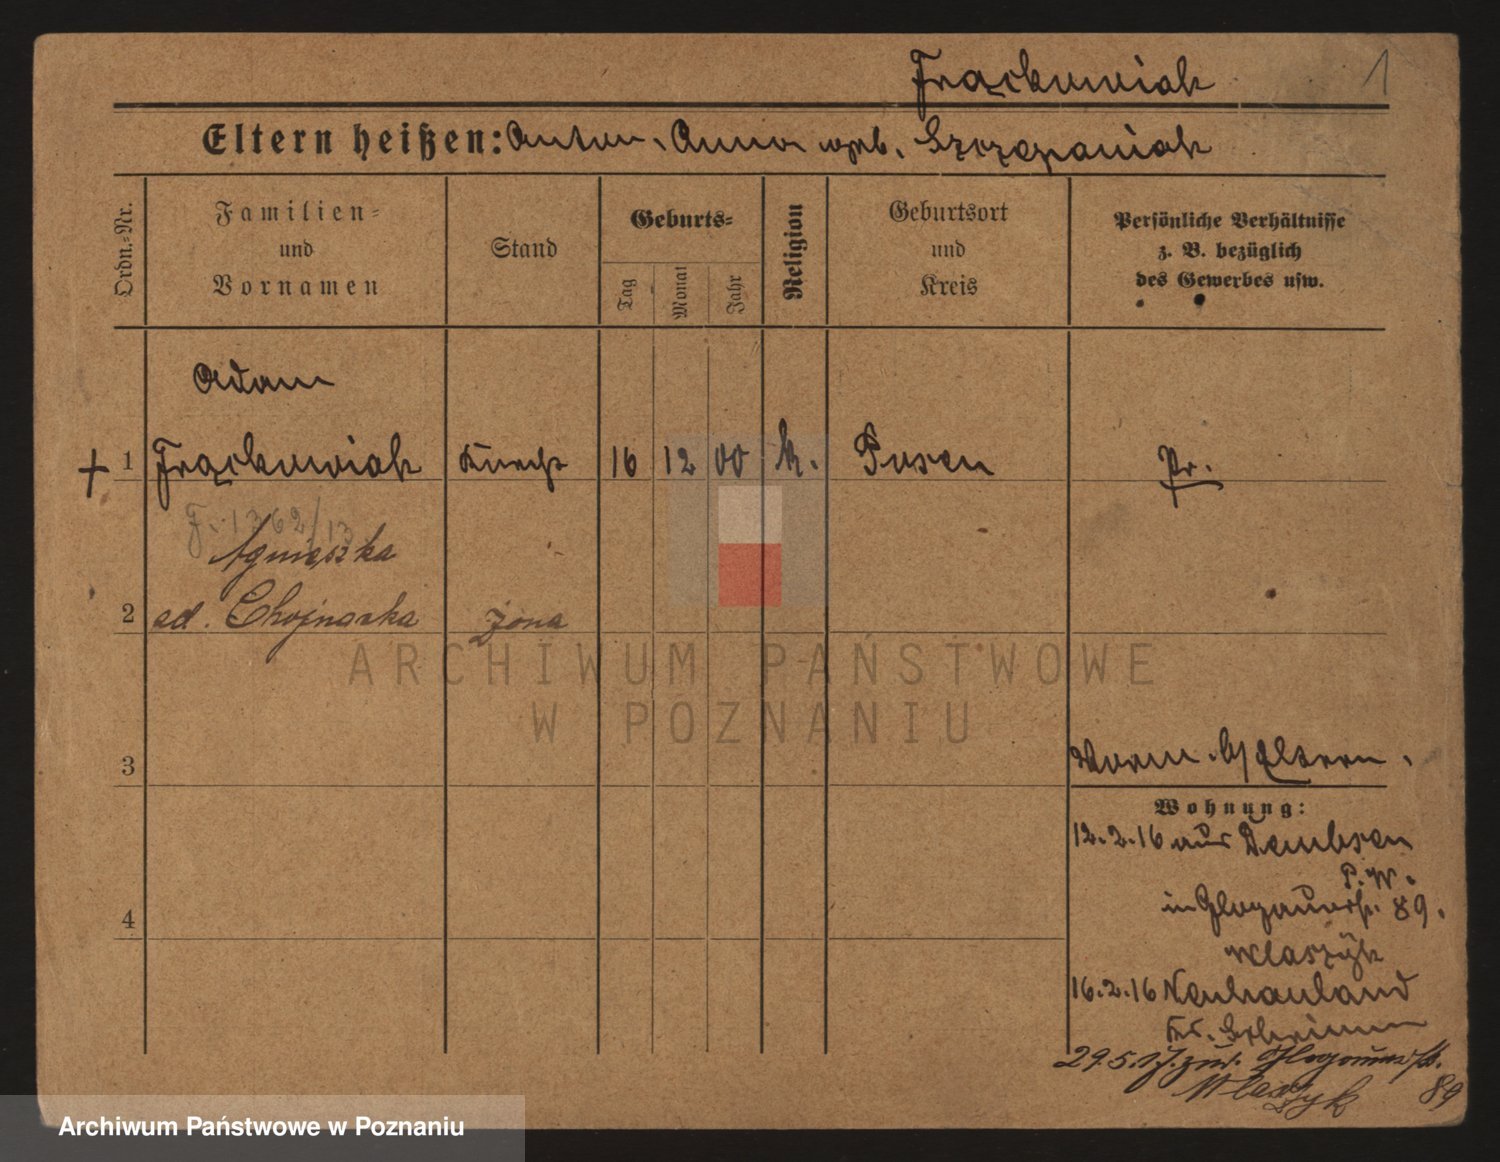 Frąckowiak 1
Eltern heißen: Anton, Anna geb. Szczepaniak
Ordn.-Nr.
Familien-
und
Vornamen
Stand
Geburts-
Tag
Monat
Jahr
Religion
Geburtsort
und
Kreis
Persönliche Verhältnisse
z. B. bezüglich
des Gewerbes usw.
Adam
+ 1 Frąckowiak Knecht 16 12 00 k. Posen Pr.
F. 1362/13
Agnieszka
2 ad. Chojnacka żona
ARCHIWUM PAŃSTWOWE
W POZNANIU
3
Vorm. b/ Eltern.
Wohnung:
12.2.16 aus Dembsen
P.W.
in Glogauerstr. 89.
4
Wlaszyk
16.2.16 Neuhauland
Kr. Schrimm
29.5.17. zur. Glogauerstr.
Wlaszyk 89
Archiwum Państwowe w Poznaniu